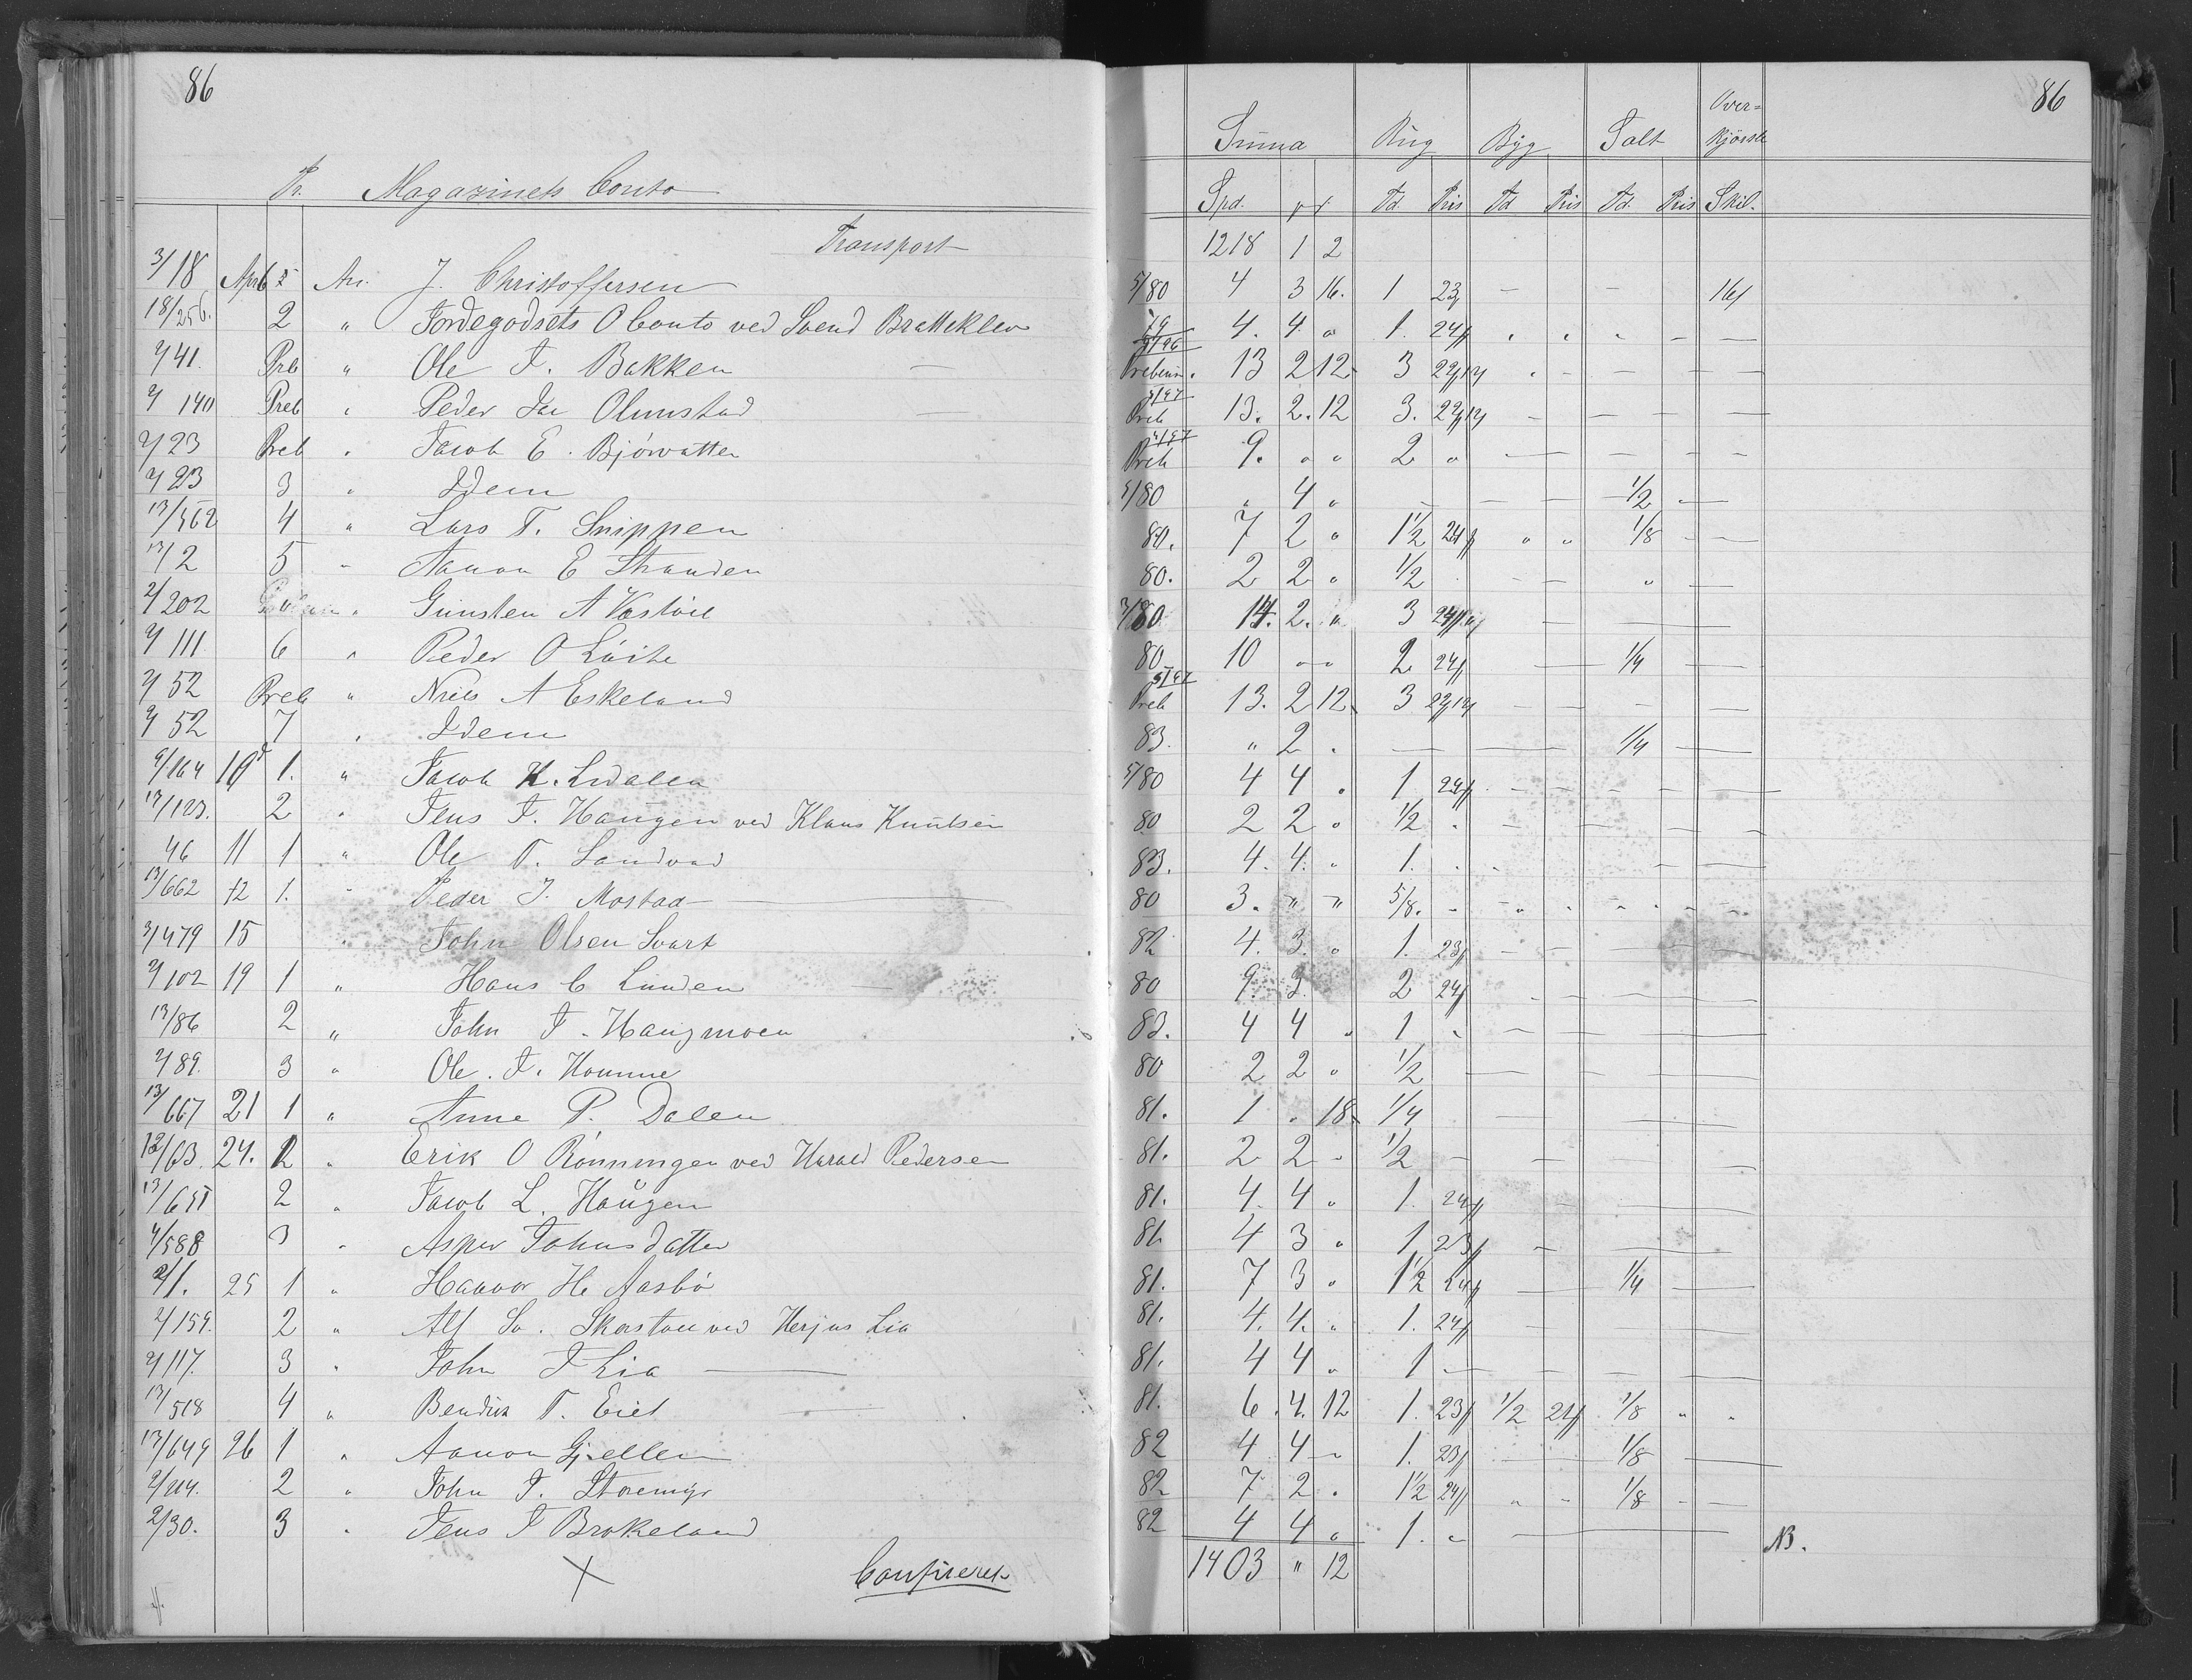 86
Pr. Magazinets Conto
Transport
3/18 Apr 6 An. J. Christoffersen
18/256. 2 " Jordegodsets O Conto ved Svend Bratteklev
2/41. Preb " Ole T. Bakken
2/140 Preb " Peder Olmstad
2/23 Preb " Jacob E. Bjørvatten
2/23 3 " Idem
13/562 4 " Lars T. Snippen
13/2 5 " Aanon E Stranden
2/202 " Gunsten A Vastøil
2/111 6 " Peder O Løite
2/52 Preb " Niels A Eskeland
2/52 7 " Idem
9/164 10 1. " Jacob K. Lidalen
13/123. 2 " Jens J. Haugen ved Klaus Knutsen
46 11 1 " Ole T. Landvad
13/662 12 1. " Peder J. Mostad
3/479 15 " John Olsen Svart
2/102 19 1 " Hans C Lunden
13/86 2 " John J. Haugmoen
2/89. 3 " Ole. J. Homme
13/667 21 1 " Anne P. Dalen
12/63. 24. 1 " Erik O Rønningen ved Harald Pedersen
13/651 2 " Jacob L. Haugen
4/588 3 " Asper Johnsdatter
2/1. 25 1 " Haavor H. Aasbø
2/159. 2 " Alf So. Skorstøl ved Herjus Lia
2/117. 3 " John J Lia
13/518 4 " Bendix T. Eiet
13/649 26 1 " Aanon Gjellen
2/214. 2 " John J. Storemyr
2/30. 3 " Jens J Brokeland
Confireret
86
Summa Rug Byg Salt Over=
kjørsel
Spd. Td. Pris Td Pris Td. Pris Skil.
1218 1 2
5/80 4 3 16. 1 23/ — — 16/
4. 4. " 1. 24/
13 2 12 3 22/12
Preb 13. 2. 12 3. 22/12
Preb 9. " " 2 "
5/80 " 4 " 1/2
80. 7 2 " 1 1/2 24/ " " 1/8
80. 2 2 " 1/2
14. 2. " 3 24/
80 10 " " 2 24/ 1/4
Preb 13. 2 12 3 22/12
83. " 2 . 1/4
5/80 4 4 . 1 24/
80 2 2 " 1/2
83. 4. 4. " 1.
80 3. " " 5/8.
82 4. 3. " 1. 23/
80 9. 3 2 24/
83. 4 4 " 1
80 2 2 " 1/2
81. 1 . 18 1/4
81. 2 2 " 1/2
81. 4. 4 " 1. 24/
81. 4 3 " 1 23/
81. 7 3 " 1 1/2 24/ 1/4
81. 4. 4. " 1. 24/
81. 4 4 " 1
81. 6. 4. 12 1. 23/ 1/2 21/ 1/8 " "
82 4 4 " 1. 23/ 1/8
82 7 2 . 1 1/2 24/ 1/8
82 4 4 " 1. "
NB.
1403 " 12